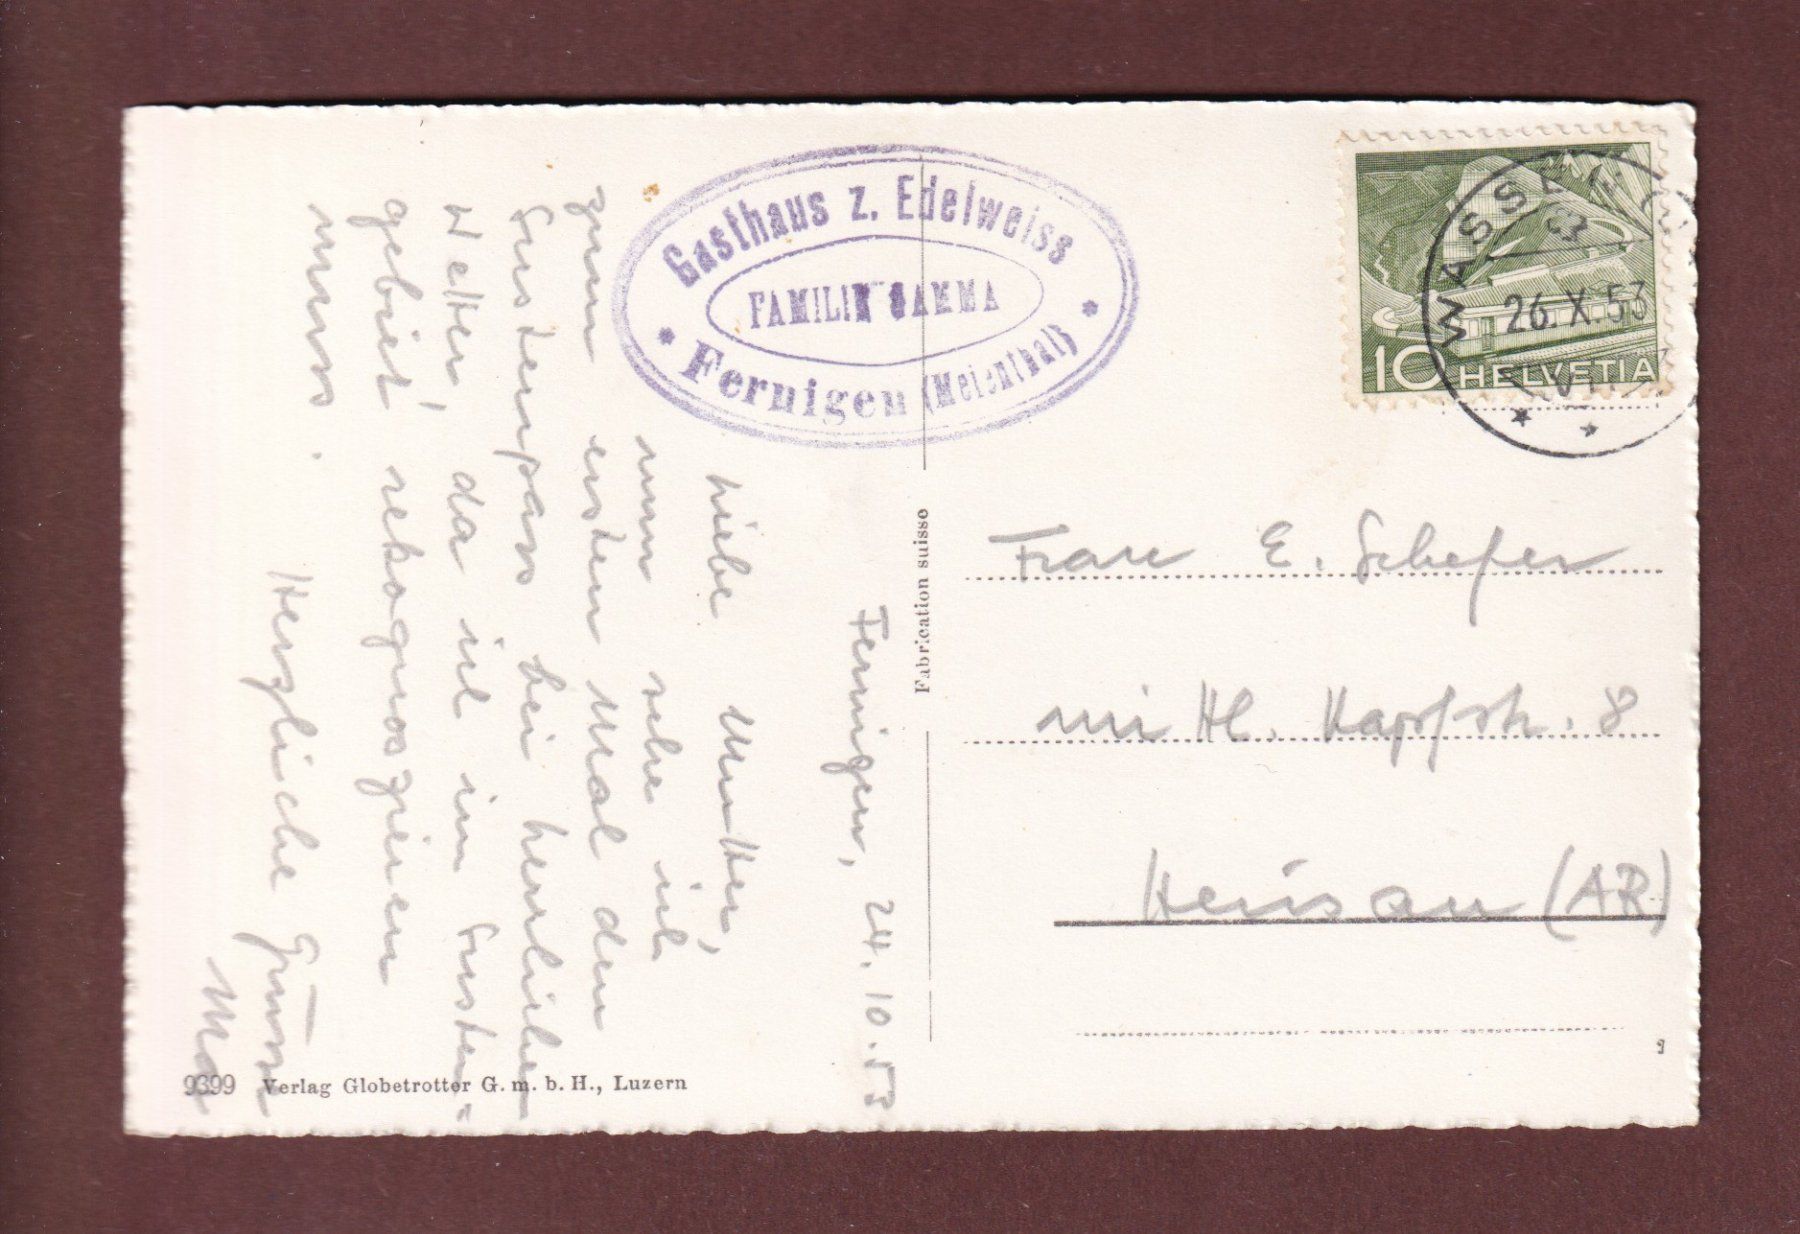 Gasthaus z. Edelweiss
FAMILIE GAMMA
* Fernigen (Meienthal) *
WASSEN
26. X. 53
10 HELVETIA
Fernigen, 24. 10. 53
Liebe Mutter,
nun sehe ich
zum ersten Mal den
Sustenpass bei herrlichem
Wetter, da ich im Susten-
gebiet rekognoszieren
muss.
Herzliche Grüsse
Frau E. Schefer
mittl. Kapfstr. 8
Herisau (AR)
Fabrication suisse
9399 Verlag Globetrotter G. m. b. H., Luzern